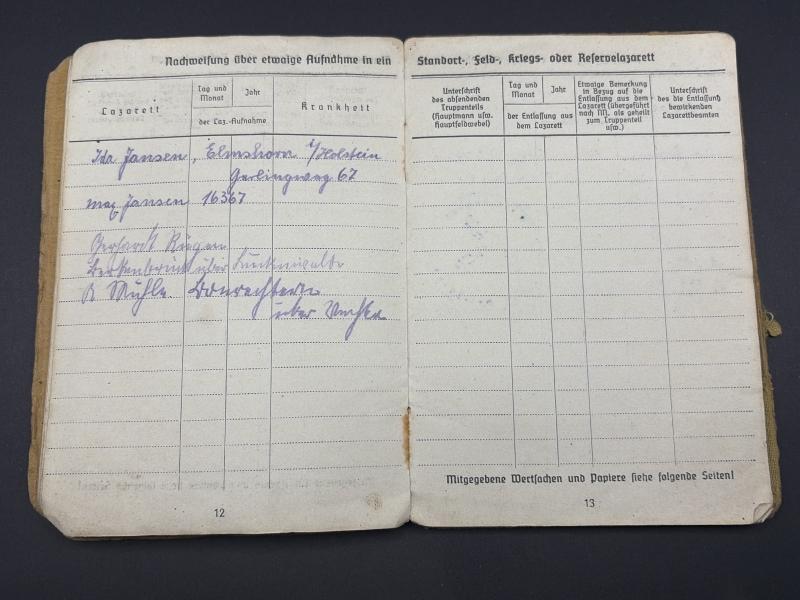 Nachweisung über etwaige Aufnahme in ein
Lazarett
Tag und Monat
Jahr
der Laz.-Aufnahme
Krankheit
Ida Jansen, Elmshorn i/Holstein
Gerlingweg 67
Max Jansen 16367
Gerhardt
über Luckenwalde
R Mühle
über
12
Standort-, Feld-, Kriegs- oder Reservelazarett
Unterschrift
des absendenden
Truppenteils
(Hauptmann usw.
Hauptfeldwebel)
Tag und Monat
Jahr
der Entlassung aus
dem Lazarett
Etwaige Bemerkung
in Bezug auf die
Entlassung aus dem
Lazarett (übergeführt
nach M., als geheilt
zum Truppenteil
usw.)
Unterschrift
des die Entlassung
bewirkenden
Lazarettbeamten
Mitgegebene Wertsachen und Papiere siehe folgende Seiten!
13